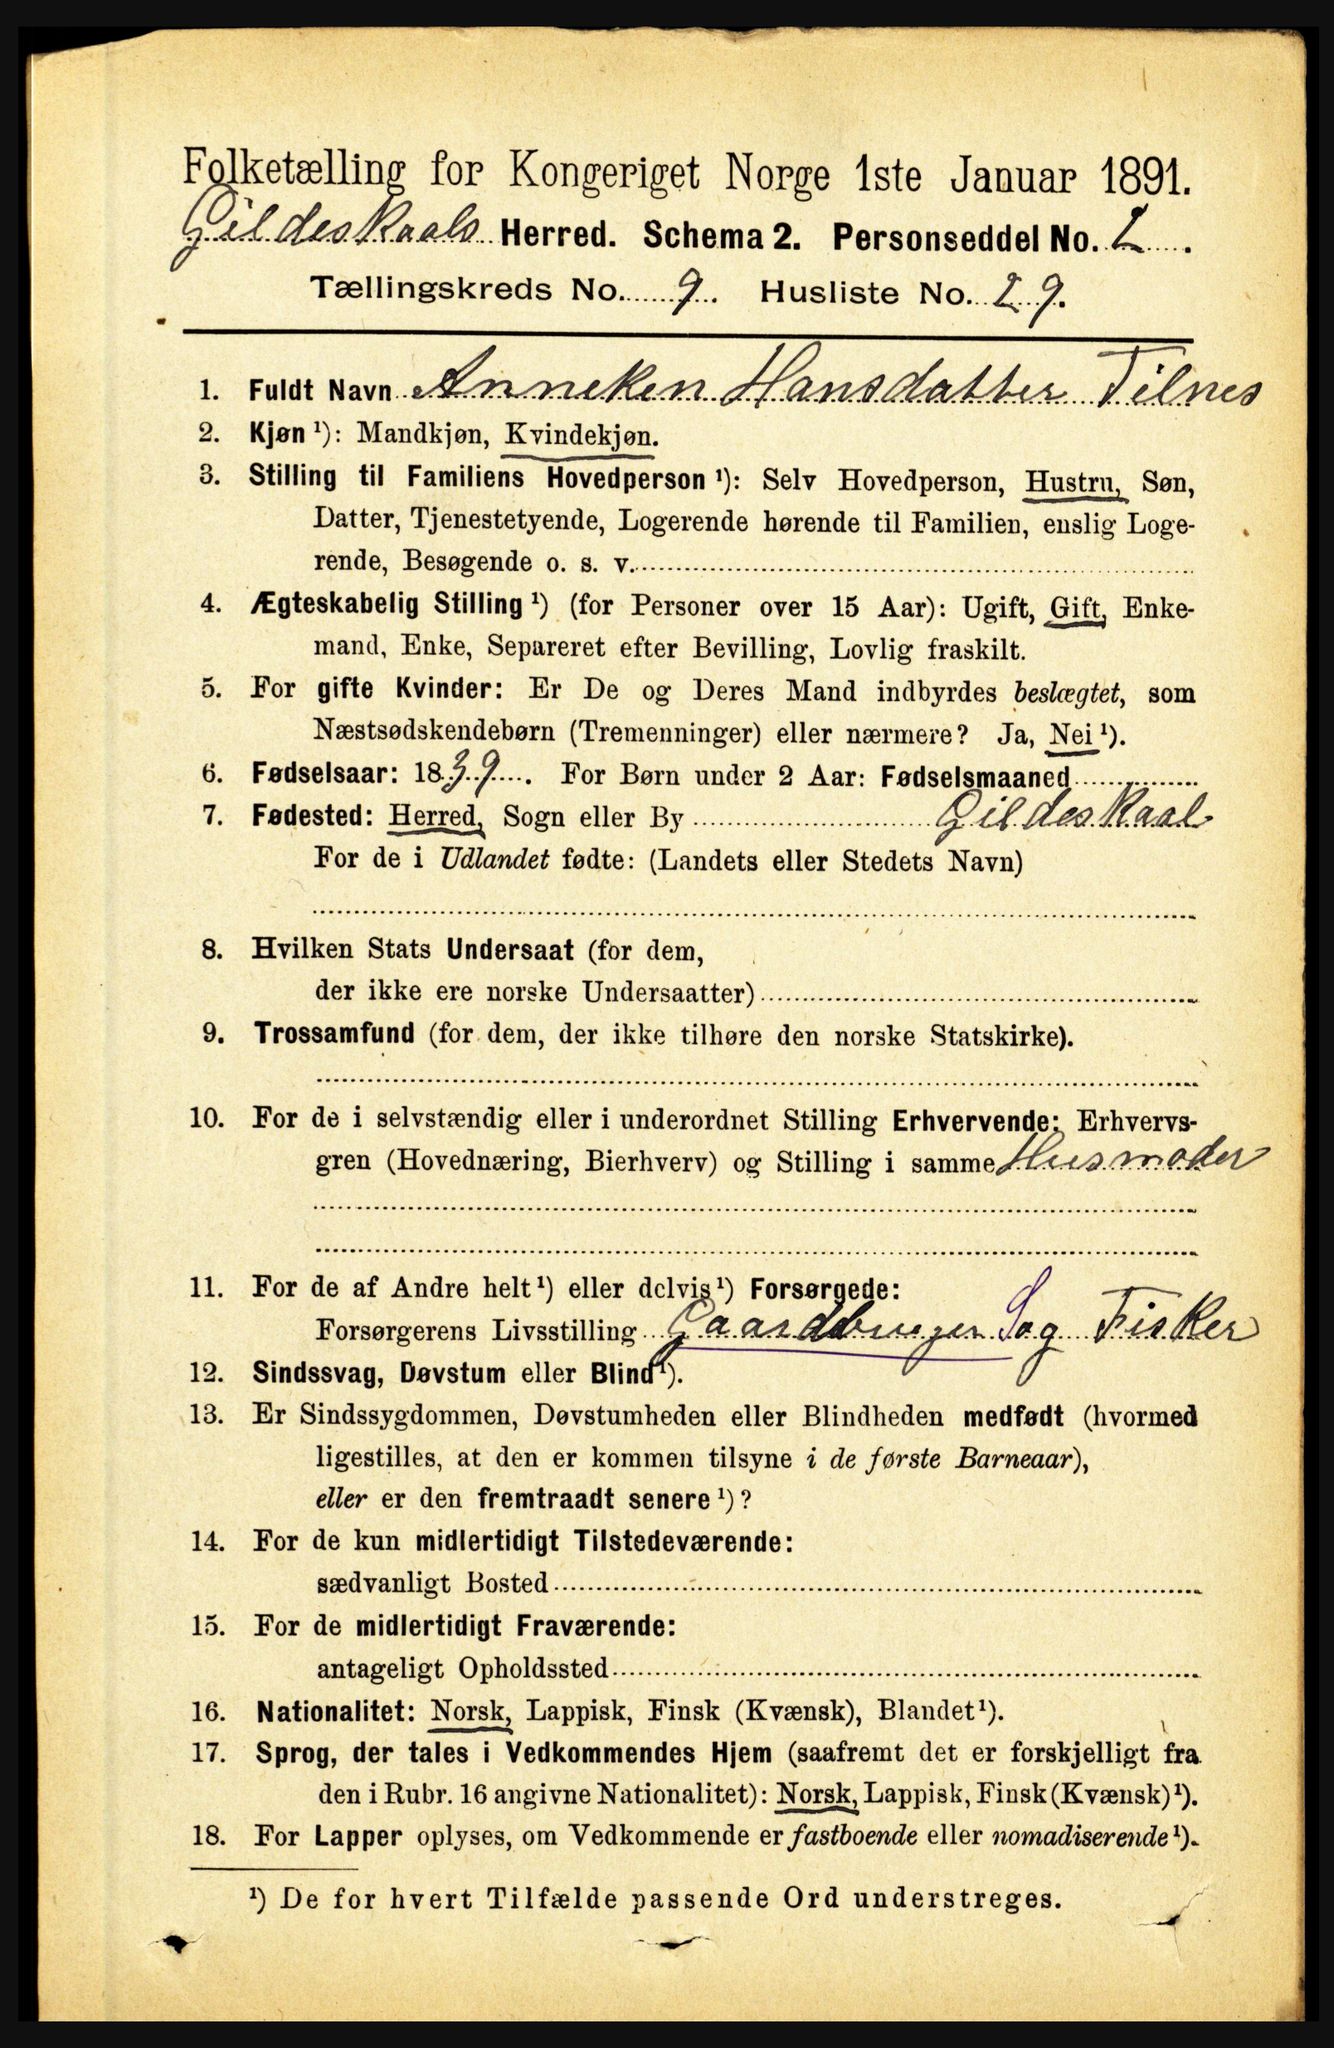 Folketælling for Kongeriget Norge 1ste Januar 1891.
Gildeskaals Herred. Schema 2. Personseddel No. 2.
Tællingskreds No. 9. Husliste No. 29.
1. Fuldt Navn Anneken Hansdatter Tilnes
2. Kjøn¹): Mandkjøn, Kvindekjøn.
3. Stilling til Familiens Hovedperson¹): Selv Hovedperson, Hustru, Søn,
Datter, Tjenestetyende, Logerende hørende til Familien, enslig Loge-
rende, Besøgende o. s. v.
4. Ægteskabelig Stilling¹) (for Personer over 15 Aar): Ugift, Gift, Enke-
mand, Enke, Separeret efter Bevilling, Lovlig fraskilt.
5. For gifte Kvinder: Er De og Deres Mand indbyrdes beslægtet, som
Næstsødskendebørn (Tremenninger) eller nærmere? Ja, Nei¹).
6. Fødselsaar: 1839. For Børn under 2 Aar: Fødselsmaaned
7. Fødested: Herred, Sogn eller By Gildeskaal
For de i Udlandet fødte: (Landets eller Stedets Navn)
8. Hvilken Stats Undersaat (for dem,
der ikke ere norske Undersaatter)
9. Trossamfund (for dem, der ikke tilhøre den norske Statskirke).
10. For de i selvstændig eller i underordnet Stilling Erhvervende: Erhvervs-
gren (Hovednæring, Bierhverv) og Stilling i samme Husmoder
11. For de af Andre helt¹) eller delvis¹) Forsørgede:
Forsørgerens Livsstilling Gaardbruger S og Fisker
12. Sindssvag, Døvstum eller Blind¹).
13. Er Sindssygdommen, Døvstumheden eller Blindheden medfødt (hvormed
ligestilles, at den er kommen tilsyne i de første Barneaar),
eller er den fremtraadt senere¹)?
14. For de kun midlertidigt Tilstedeværende:
sædvanligt Bosted
15. For de midlertidigt Fraværende:
antageligt Opholdssted
16. Nationalitet: Norsk, Lappisk, Finsk (Kvænsk), Blandet¹).
17. Sprog, der tales i Vedkommendes Hjem (saafremt det er forskjelligt fra
den i Rubr. 16 angivne Nationalitet): Norsk, Lappisk, Finsk (Kvænsk)¹).
18. For Lapper oplyses, om Vedkommende er fastboende eller nomadiserende¹).
¹) De for hvert Tilfælde passende Ord understreges.